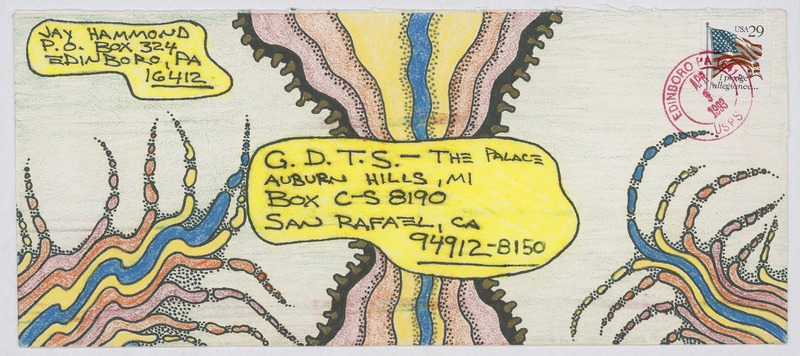 JAY HAMMOND
P.O. BOX 324
EDINBORO, PA
16412
USA 29
I pledge
allegiance...
EDINBORO PA
APR
5
1993
USPS
G.D.T.S. – THE PALACE
AUBURN HILLS, MI
BOX C-S 8190
SAN RAFAEL, CA
94912-8150